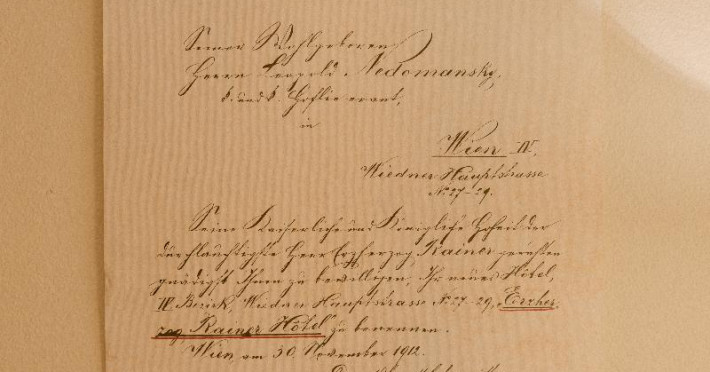 Seiner Wohlgeboren
Herrn Leopold Nedomansky,
k. und k. Hoflieferant,
in
Wien IV.
Wiedner Hauptstrasse
No 27-29.
Seine Kaiserliche und Königliche Hoheit der
durchlauchtigste Herr Erzherzog Rainer geruhten
gnädigst Ihnen zu bewilligen, Ihr neues Hôtel,
IV. Bezirk, Wiedner Hauptstrasse No 27-29, „Erzher-
zog Rainer Hôtel" zu benennen.
Wien, am 30. November 1912.